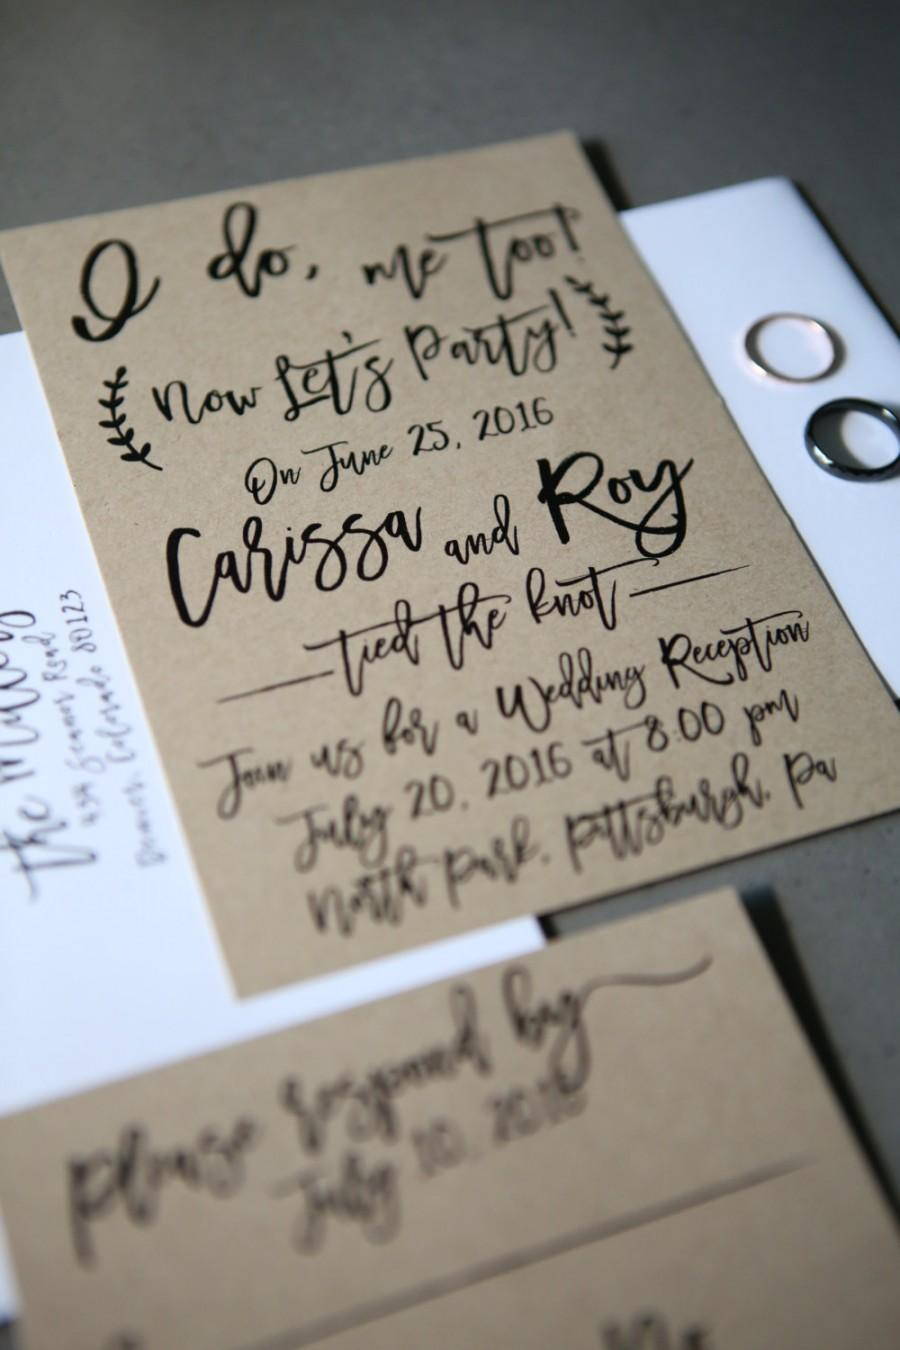 I do, me too!
Now Let's Party!
On June 25, 2016
Carissa and Roy
tied the knot
Join us for a Wedding Reception
July 20, 2016 at 8:00 pm
North Park, Pittsburgh, Pa
the
Road
Denver, Colorado 80123
Please respond by
July 10, 2016